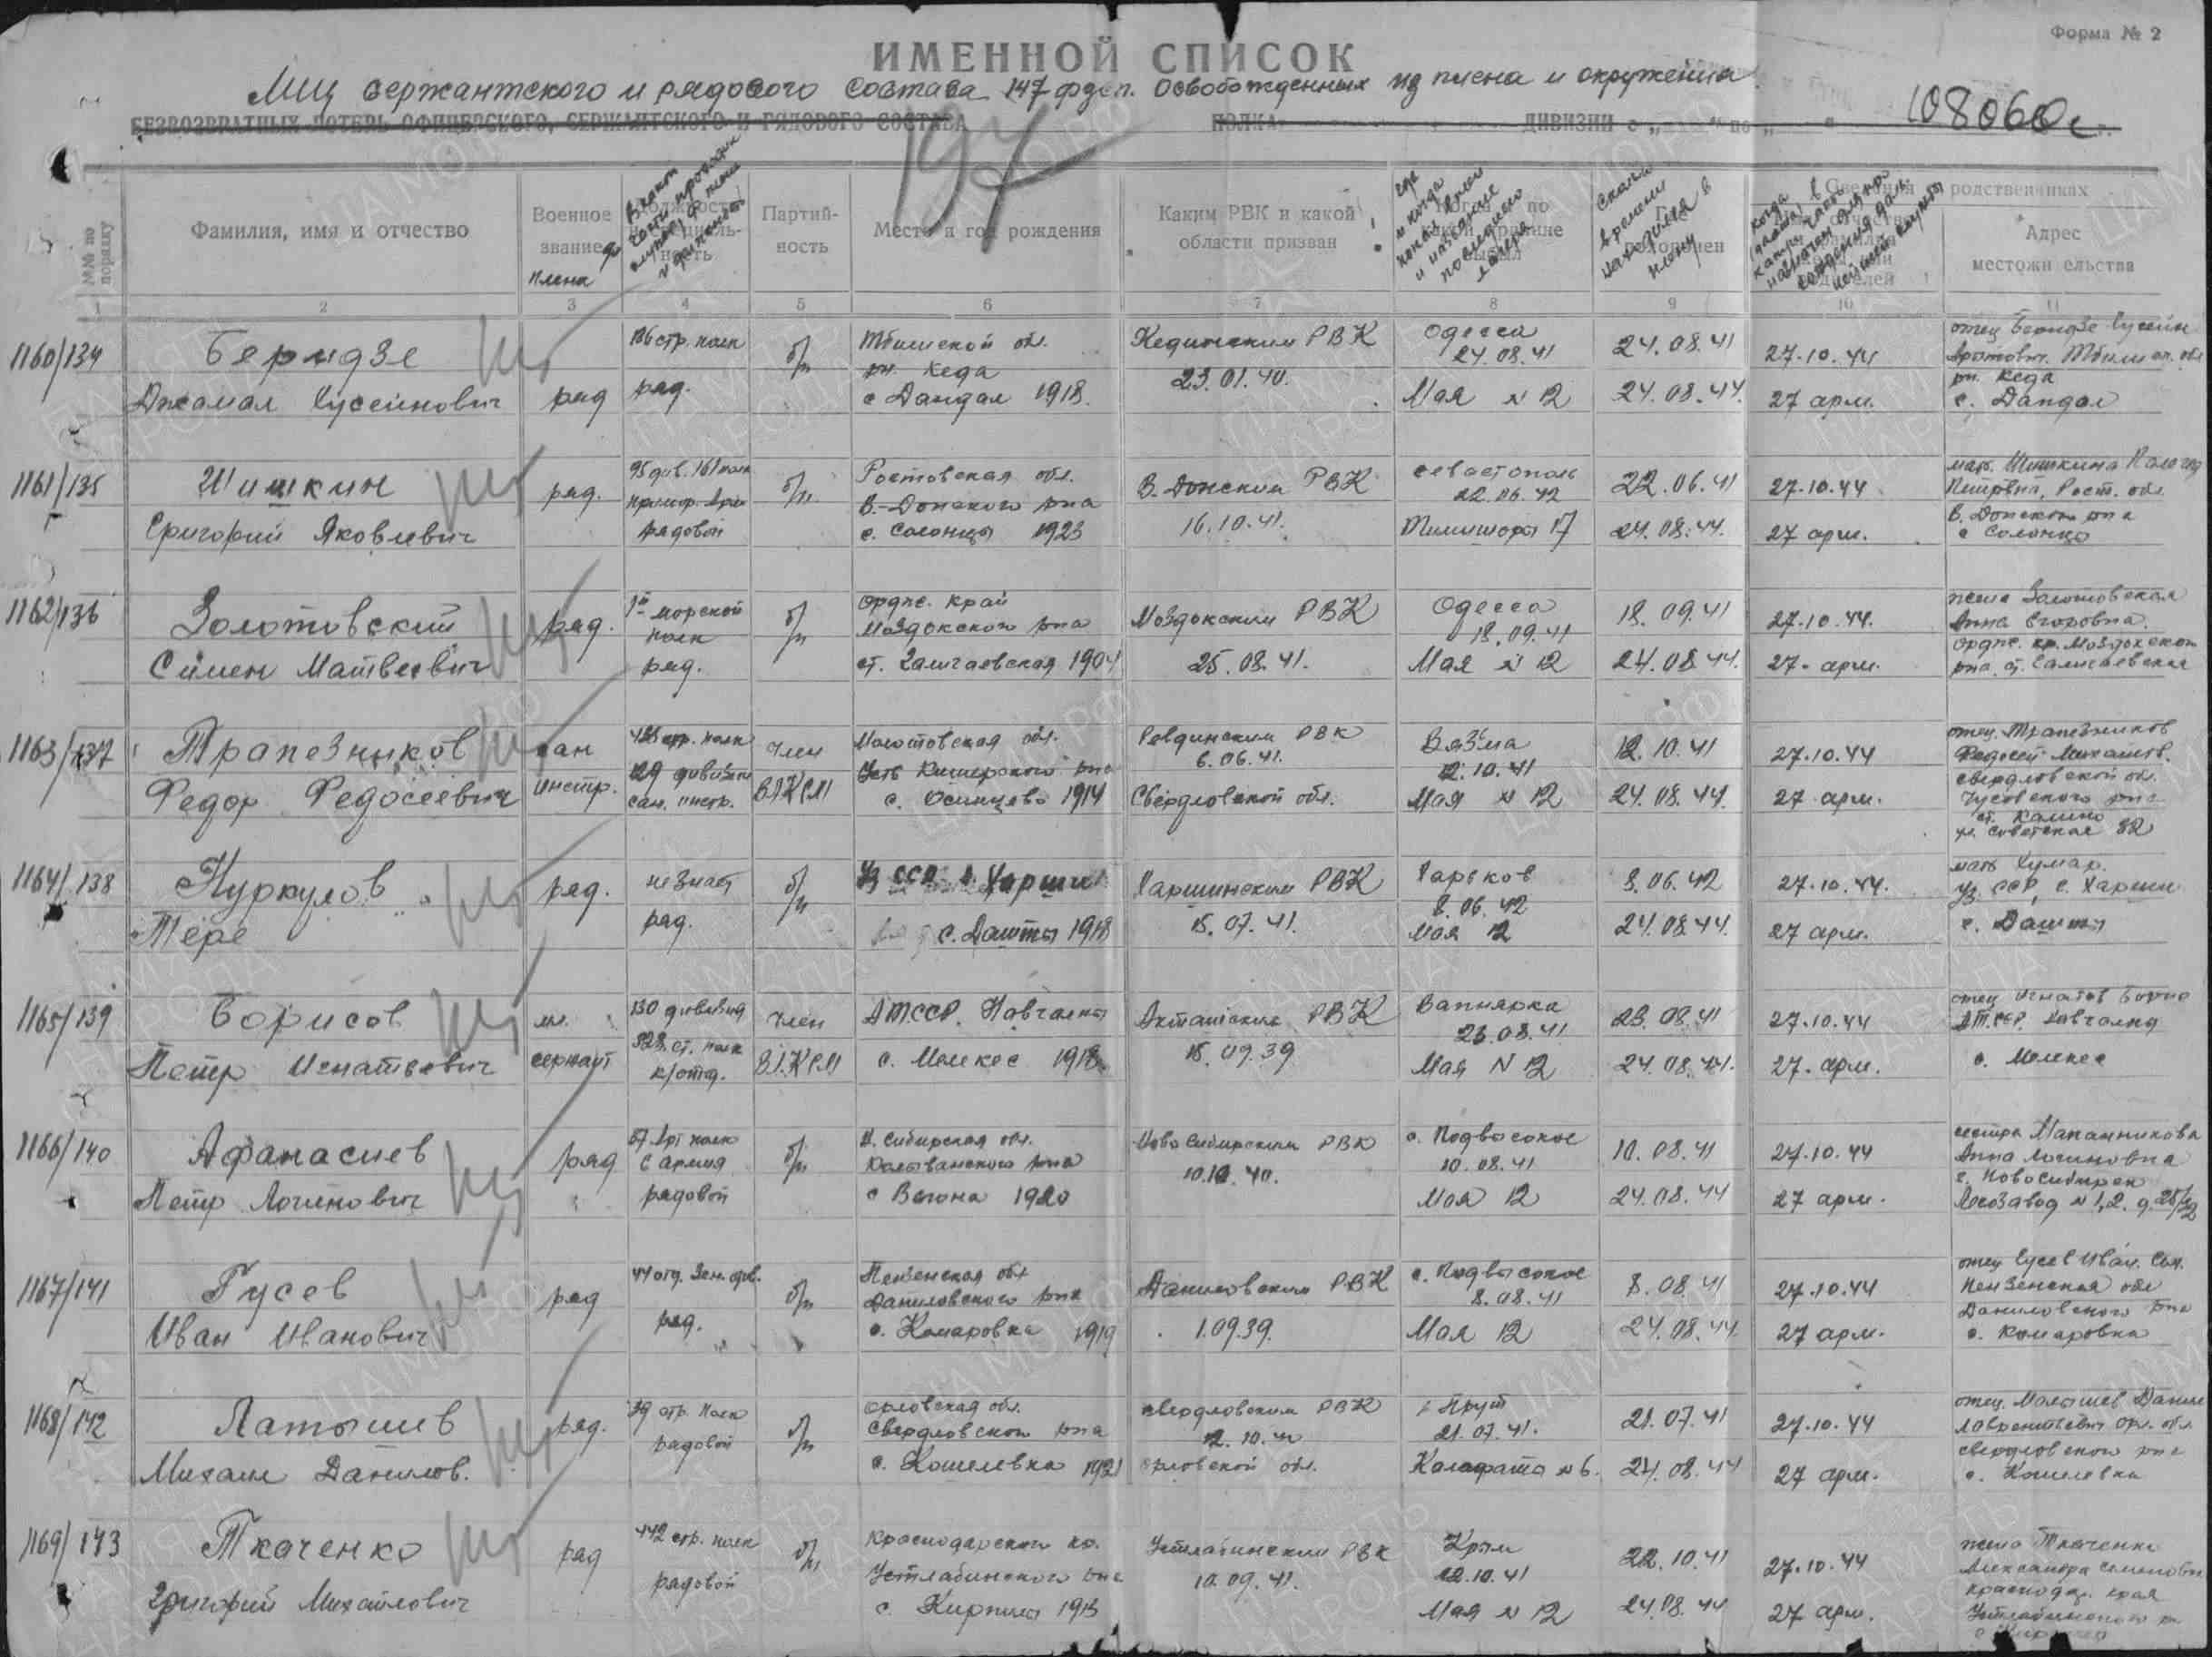 Форма № 2
ИМЕННОЙ СПИСОК
Лиц сержантского и рядового состава 147 фзсп. освобожденных из плена и окружения
БЕЗВОЗВРАТНЫХ ПОТЕРЬ ОФИЦЕРСКОГО, СЕРЖАНТСКОГО И РЯДОВОГО СОСТАВА ПОЛКА ДИВИЗИИ с „ “ по „ 108060с
197
№№ по порядку
Фамилия, имя и отчество
Военное звание до плена
В какой части проходил службу до плена и должность
Партийность
Место и год рождения
Каким РВК и какой области призван
Где и когда попал в плен и название последнего лагеря
Сколько времени находился в плену
Сведения о родственниках
Адрес местожительства
1 2 3 4 5 6 7 8 9 10 11
1160/134 Беридзе 136 стр. полк б/п обл. Кединским РВК Одесса 24.08.41 24.08.41 27.10.44 отец Беридзе Гусейн
Джамал Хусейнович ряд ряд. рн. Кеда с Дандал 1918. 23.01.40. Мая N 12 24.08.44. 27 арм. рн. Кеда с. Дандал
1161/135 Шишкин ряд. 95 див. 161 полк б/п Ростовская обл. В. Донским РВК Севастополь 22.06.42 22.06.41 27.10.44 мать Шишкина
Григорий Яковлевич рядовой В.-Донского рна с. Солонцы 1923 16.10.41. Тимишоры 17 24.08.44. 27 арм. Петровна, Рост. обл. В. Донского рна с Солонцы
1162/136 Золотовский ряд. 1й морской полк б/п Орджс. край Моздокским РВК Одесса 18.09.41 18.09.41 27.10.44. жена Золотовская Анна Егоровна.
Семен Матвеевич ряд. Моздокского рна ст. Галюгаевская 1904 25.08.41. Мая N 12 24.08.44. 27. арм. Орджс. кр. Моздокского рна. ст. Галюгаевская
1163/137 Трапезников сан стр. полк член Молотовская обл. Ревдинским РВК 6.06.41. Вязьма 12.10.41 12.10.41 27.10.44 отец. Трапезников Федосей Михайлов.
Федор Федосеевич инстр. 129 дивизия сан. инстр. ВЛКСМ Усть Кишерского рна с. Осинцево 1914 Свердловской обл. Мая N 12 24.08.44. 27 арм. Свердловской обл. Чусовского рна ст. Калино ул. Советская 82
1164/138 Нуркулов ряд. не знает б/п Уз ССР Карши Каршинским РВК Харьков 8.06.42 8.06.42 27.10.44. мать Хумар.
Тере ряд. с. Дашты 1918 15.07.41. Мая 12 24.08.44. 27 арм. Уз. ССР, г. Карши с. Дашты
1165/139 Борисов мл. 130 дивизия член АТССР. Акташским РВК Вапнярка 23.08.41 23.08.41 27.10.44 отец Игнатов
Петр Игнатьевич сержант 528. ст. полк к/отд. ВЛКСМ с. Мелекес 1918. 15.09.39 Мая N 12 24.08.44. 27. арм. АТССР. с. Мелекес
1166/140 Афанасиев ряд 57 Арт полк б/п Н. Сибирская обл. Ново Сибирским РВК с. Подвысокое 10.08.41 10.08.41 27.10.44 сестра Анна Логиновна
Петр Логинович 6 Армия рядовой Колыванского рна с Вьюна 1920 10.12.40. Мая 12 24.08.44 27 арм. г. Новосибирск Лесозавод N 1,2.
1167/141 Гусев ряд 44 отд. Зен. див. б/п Пензенская обл Даниловским РВК с. Подвысокое 8.08.41 8.08.41 27.10.44 отец Гусев Иван. Сем.
Иван Иванович ряд. Даниловского рна с. Комаровка 1919 1.09.39. Мая 12 24.08.44. 27 арм. Пензенская обл Даниловского рна с. Комаровка
1168/142 Латышев ряд. 39 стр. полк б/п Орловская обл. Свердловским РВК р. Прут 21.07.41. 21.07.41 27.10.44 отец
Михаил Данилов. рядовой Свердловского рна с. Кошелевка 1921 Орловской обл. Калафата N 6. 24.08.44 27 арм. Лаврентьевич орл. обл. Свердловского рна с. Кошелевка
1169/143 Ткаченко ряд 442 стр. полк б/п Краснодарского кр. Устлабинским РВК Крым 22.10.41 27.10.44 жена Ткаченко
Григорий Михайлович рядовой Устлабинского рна с. Кирпили 1913 10.09.41. Мая N 12 24.08.44 27 арм. Александра Семеновн Краснодар. края Устлабинского р